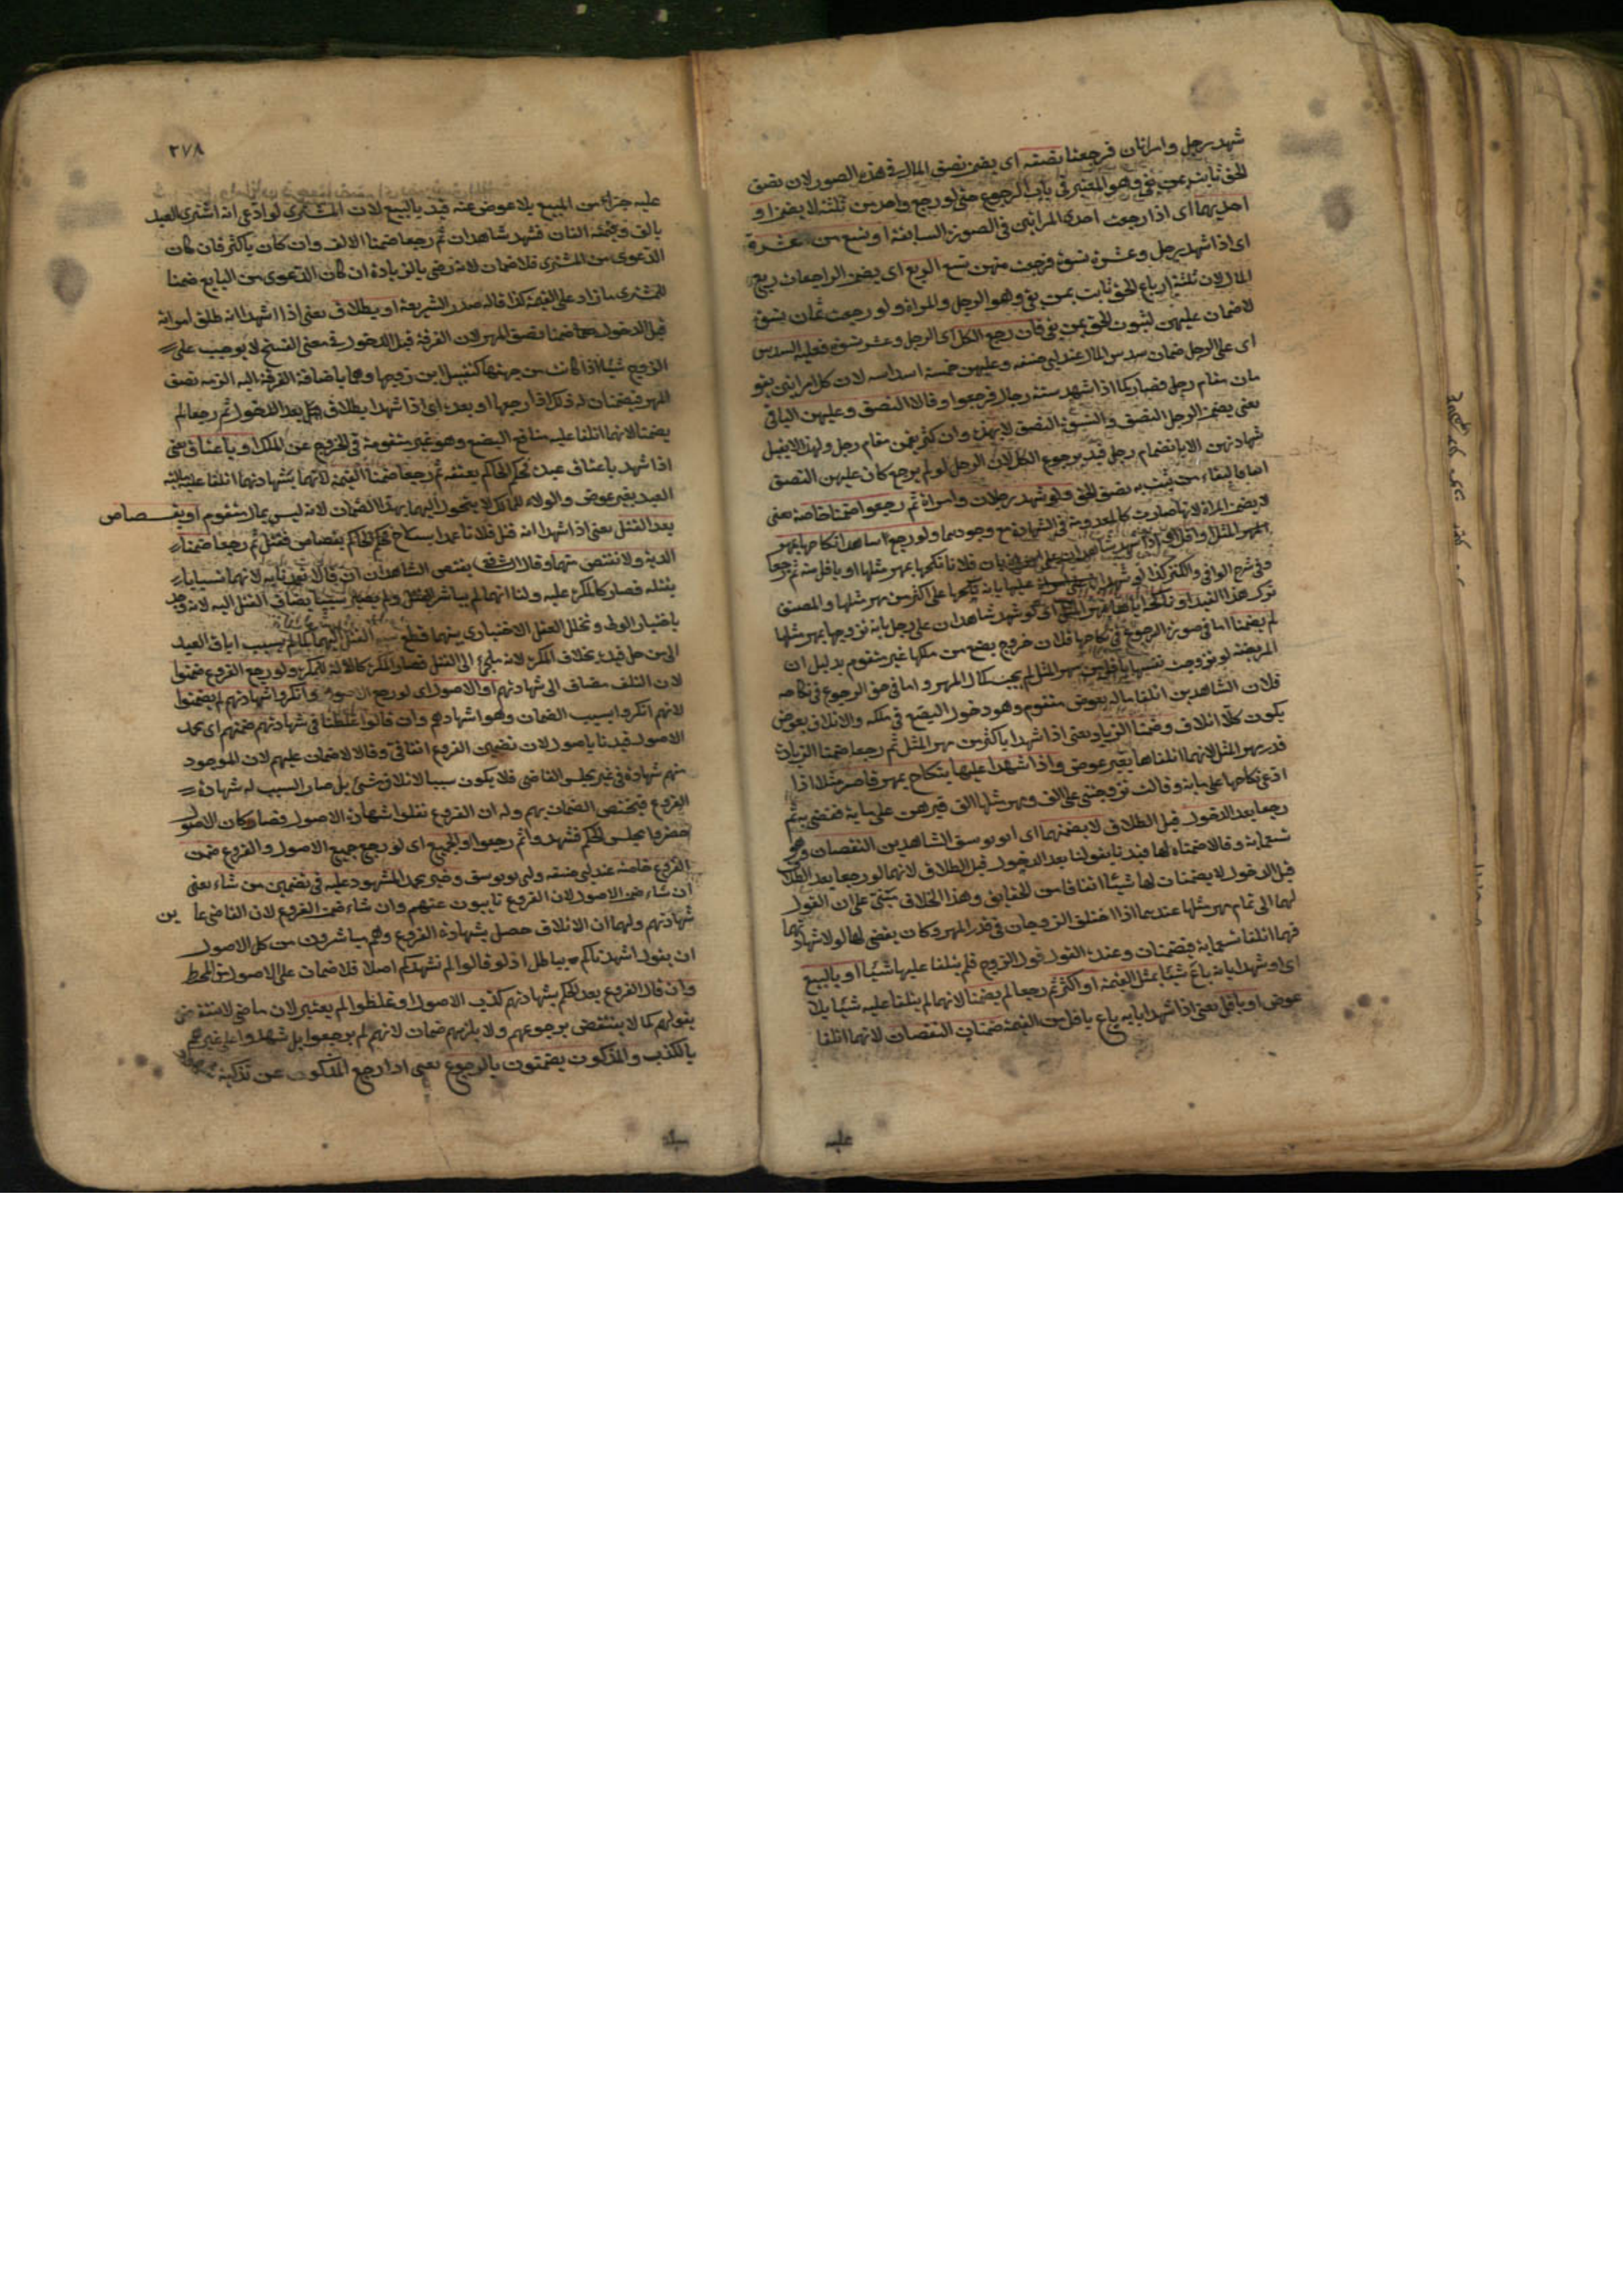 شهد رجل وامراتان فرجعتا نصفه اى يضمن نصف المال فى هذه الصور لان نصف
الحق ثابت بمن بقى وهو المعتبر فى باب الرجوع حتى لو رجع واحد من ثلثة لا يضمن او
احديهما اى اذا رجعت احدى المراتين فى الصورة السابقة او تسع من عشرة
اى اذا شهد رجل وعشرة نسوة فرجعت منهن تسع الربع اى يضمن الراجعات ربع
المال لان ثلثة ارباع الحق ثابت بمن بقى وهو الرجل والمراة ولو رجعت ثمان نسوة
لا ضمان عليهن لثبوت الحق بمن بقى فان رجع الكل اى الرجل وعشر نسوة فعليه السدس
اى على الرجل ضمان سدس المال عند ابى حنيفه وعليهن خمسة اسداسه لان كل امراتين يقو
مان مقام رجل فصار كما اذا شهد ستة رجال فرجعوا وقالا النصف وعليهن الباقى
يعنى يضمن الرجل النصف والنسوة النصف لانهن وان كثرن يقمن مقام رجل ولهذا لا يقبل
شهادتهن الا بانضمام رجل قيد برجوع الكل لان الرجل لو لم يرجع كان عليهن النصف
اصابا لبقاء من يثبت به نصف الحق ولو شهد رجلان وامراة ثم رجعوا ضمنا خاصة يعنى
لا يضمن المراة لانها صارت كالمعدومة فى الشهادة مع وجودهما ولو رجع شاهدا نكاحها بمهر
المهر المثل او اقل اى اذا شهد شاهدان على فلانا نكحها بمهر مثلها او باقل منه ثم رجعا
وفى شرح الوافى والكنز كذا لو شهدا عليها بانه نكحها على اكثر من مهر مثلها والمصنف
ترك هذا القيد او نكاحها اياها بمهر المثل اى لو شهد شاهدان على رجل بانه تزوجها بمهر مثلها
لم يضمنا اما فى صورة الرجوع فى نكاحها فلان خروج بضع من ملكها غير متقوم بدليل ان
المريضة لو تزوجت نفسها باقل من مهر المثل لم يجب كمال المهر واما فى حق الرجوع فى نكاحه
فلان الشاهدين اتلفا ماله بعوض متقوم وهو دخول البضع فى ملكه والاتلاف بعوض
يكون كلا اتلاف وضمنا الزيادة يعنى اذا شهدا باكثر من مهر المثل ثم رجعا ضمنا الزيادة
قدر مهر المثل لانهما اتلفاها بغير عوض واذا شهدا عليها بنكاح بمهر قاصر مثلا اذا
ادعى نكاحها على مائة وقالت تزوجتنى على الف ومهر مثلها الف فبرهن على مائة فقضى به ثم
رجعا بعد الدخول قبل الطلاق لا يضمنهما اى ابو يوسف الشاهدين النقصان وهو
تسعمائة وقالا ضمناه لها قيدنا بقولنا بعد الدخول قبل الطلاق لانهما لو رجعا بعد الطلاق
قبل الدخول لا يضمنان لها شيئا اتفاقا من الحقايق وهذا الخلاف مبنى على ان القول
لها الى تمام مهر مثلها عندهما اذا اختلف الزوجان فى قدر المهر وكان يقضى لها لولا شهادتهما
فهما اتلفا تسعمائة فيضمنان وعنده القول قول الزوج فلم يتلفا عليها شيئا او بالبيع
اى او شهدا بانه باع شيئا بمثل القيمة او اكثر ثم رجعا لم يضمنا لانهما لم يتلفا عليه شيئا بلا
عوض او باقل يعنى اذا شهدا بانه باع باقل من القيمة ضمنان النقصان لانهما اتلفا
عليه
٢٧٨
عليه جزا من المبيع بلا عوض عنه قيد بالبيع لان المشترى لو ادعى انه اشترى العبد
بالف وقيمته الفان فشهد شاهدان ثم رجعا ضمنا الالف وان كان باكثر فان كان
الدعوى من المشترى فلا ضمان لانه رضى بالزيادة ان كان الدعوى من البايع ضمنا
للمشترى ما زاد على القيمة كذا قاله صدر الشريعة او بطلاق يعنى اذا شهدا انه طلق امراته
قبل الدخول ضمنا نصف المهر لان الفرقة قبل الدخول فى معنى الفسخ لا يوجب على
الزوج شيئا اذا كانت من جهتها كتقبيل ابن زوجها وهما باضافة الفرقة اليه الزمه نصف
المهر فيضمنان له ذلك اذا رجعا او بعده اى اذا شهدا بطلاق رجل بعد الدخول ثم رجعا لم
يضمنا لانهما اتلفا عليه منافع البضع وهو غير متقومة فى الخروج عن الملك او باعتاق يعنى
اذا شهد باعتاق عبده فحكم الحاكم بعتقه ثم رجعا ضمنا القيمة لانهما بشهادتهما اتلفا عليه مالية
العبد بغير عوض والولاء للمالك لا يتحول اليهما بهذا الضمان لانه ليس بمال متقوم او بقصاص
بعد القتل يعنى اذا شهدا انه قتل فلانا عمدا بسلاح فحكم الحاكم بقصاص فقتل ثم رجعا ضمنا
الدية ولا نقتص منهما وقال الشافعى يقتص الشاهدان ان قالا تعمدنا به لانهما تسببا
بقتله فصار كالمكره عليه ولنا انهما لم يباشر القتل ولم يصير سببا يضاف القتل اليه لانه وقع
باختيار الولى وتخلل الفعل الاختيارى بينهما قطع القتل اليهما كما لم يسبب اباق العبد
الى من حل قيده بخلاف المكره لانه ملجئ الى القتل فصار المكره كالالة للمكره ولو رجع الفروع ضمنوا
لان التلف مضاف الى شهادتهم او الاصول اى لو رجع الاصول وانكروا شهادتهم لم يضمنوا
لانهم انكروا بسبب الضمان وهو اشهادهم وان قالوا غلطنا فى شهادتهم ضمنهم اى محمد
الاصول قيدنا باصول لان تضمين الفروع اتفاقى وقالا لا ضمان عليهم لان الموجود
منهم شهادة فى غير مجلس القاضى فلا يكون سببا لاتلاف شئ بل صار السبب له شهادة
الفروع فيختص الضمان بهم وله ان الفروع نقلوا شهادة الاصول فصار كان الاصول
حضروا مجلس الحكم فشهدوا ثم رجعوا او الجميع اى لو رجع جميع الاصول والفروع ضمن
الفروع خاصة عند ابى حنيفه وابى يوسف وخير محمد المشهود عليه فى تضمين من شاء يعنى
ان شاء ضمن الاصول لان الفروع نايبون عنهم وان شاء ضمن الفروع لان القاضى عاين
شهادتهم ولهما ان الاتلاف حصل بشهادة الفروع وهم مباشرون من كل الاصول
ان يقول اشهدناكم بباطل اذ لو قالوا لم نشهدكم اصلا فلا ضمان على الاصول من المحيط
وان قال الفروع بعد الحكم بشهادتهم كذب الاصول او غلطوا لم يعتبر لان ما مضى لا ينتقض
بقولهم كما لا ينتقض برجوعهم ولا يلزمهم ضمان لانهم لم يرجعوا بل شهدوا على غيرهم
بالكذب والمذكون يضمنون بالرجوع يعنى اذا رجع المذكون عن تذكية